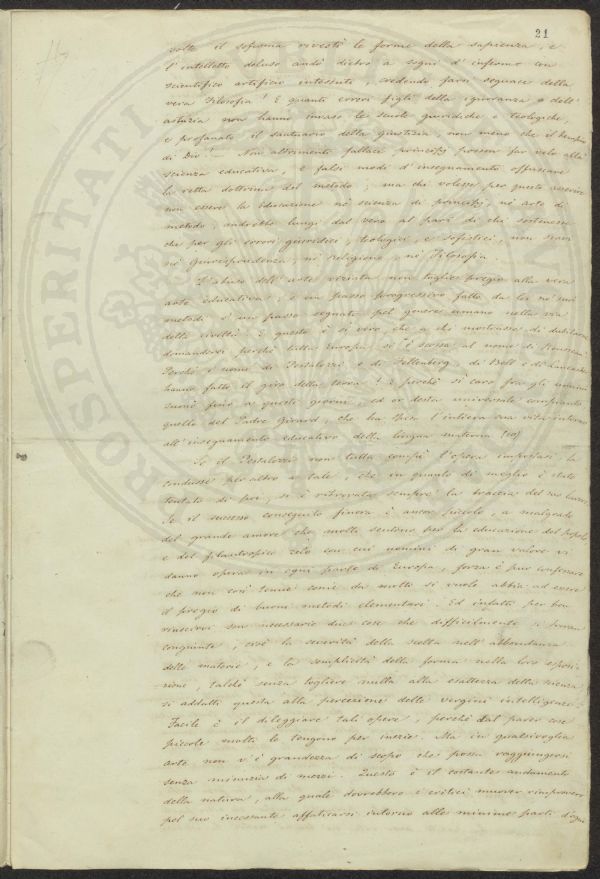 21
volte il sofisma rivestì le forme della sapienza, e
l'intelletto deluso andò dietro a sogni d'infermo con
scientifico artificio intessuti, credendo farsi seguace della
vera Filosofia! E quanti errori figli della ignoranza o dell'
astuzia non hanno invaso le scuole giuridiche e teologiche,
e profanato il santuario della giustizia, non meno che il tempio
di Dio! — Non altrimenti fallaci principj posson far velo alla
scienza educativa, e falsi modi d'insegnamento offuscare
la retta dottrina del metodo; ma chi volesse per questo asserire
non essere la Educazione nè scienza di principj, nè arte di
metodo, andrebbe lungi dal vero al pari di chi sostenesse
che per gli errori giuridici, teologici, e sofistici, non siavi
nè Giurisprudenza, nè Religione, nè Filosofia.
L'abuso dell'arte viziata non toglie pregio alla vera
arte educativa; e un passo progressivo fatto da lei ne' suoi
metodi è un passo segnato pel genere umano nella via
della civiltà. E questo è sì vero, che a chi mostrasse di dubitarne
domanderei perchè tutta Europa si è scossa al nome di Rousseau?
Perchè i nomi di Pestalozzi e di Fellenberg, di Bell e di Lancaster
hanno fatto il giro della terra? E perchè sì caro fra gli uomini
suonò fino a questi giorni, ed or desta universale compianto
quello del Padre Girard, che ha spesa l'intiera sua vita intorno
all'insegnamento educativo della lingua materna (10)
Se il Pestalozzi non tutta compì l'opera impresa, la
condusse per altro a tale, che in quanto di meglio è stato
tentato di poi, si è ritrovata sempre la traccia del suo lavoro.
Se il successo conseguito finora è ancor piccolo, a malgrado
del grande amore che molti sentono per la educazione del popolo
e del filantropico zelo con cui uomini di gran valore vi
danno opera in ogni parte di Europa, forza è pur confessare
che non così tenue come da molti si vuole abbia ad essere
il pregio di buoni metodi elementari. Ed infatti per ben
riuscirvi son necessarie due cose che difficilmente si trovan
congiunte, cioè la severità della scelta nell'abbondanza
delle materie, e la semplicità della forma nella loro esposi-
zione, talchè senza togliere nulla alla esattezza della scienza
si addatti questa alla percezione delle vergini intelligenze.
Facile è il dileggiare tali opere, perchè dal parer cose
piccole molti le tengono per inezie. Ma in qualsivoglia
arte non v'è grandezza di scopo che possa raggiungersi
senza minuzia di mezzi. Questo è il costante andamento
della natura, alla quale dovrebbero i critici muover rimprovero
pel suo incessante affaticarsi intorno alle minime parti d'ogni
PROSPERITATI